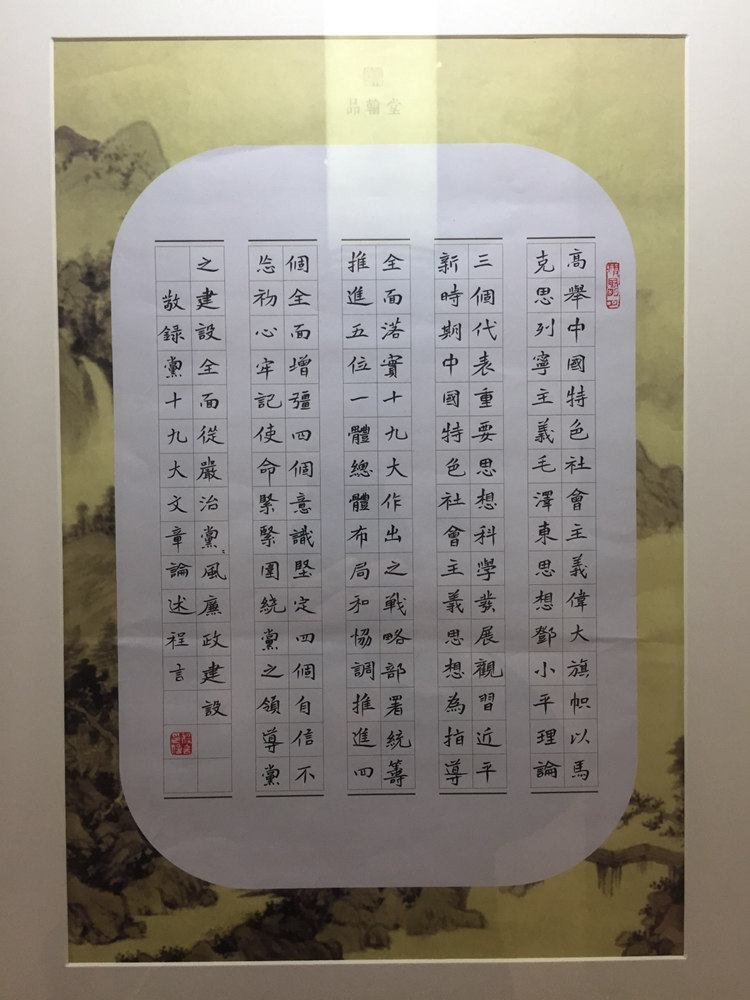 品翰堂
高舉中國特色社會主義偉大旗幟以馬
克思列寧主義毛澤東思想鄧小平理論
三個代表重要思想科學發展觀習近平
新時期中國特色社會主義思想為指導
全面落實十九大作出之戰略部署統籌
推進五位一體總體布局和協調推進四
個全面增彊四個意識堅定四個自信不
忘初心牢記使命緊緊圍繞黨之領導黨
之建設全面從嚴治黨風廉政建設
敬錄黨十九大文章論述程言